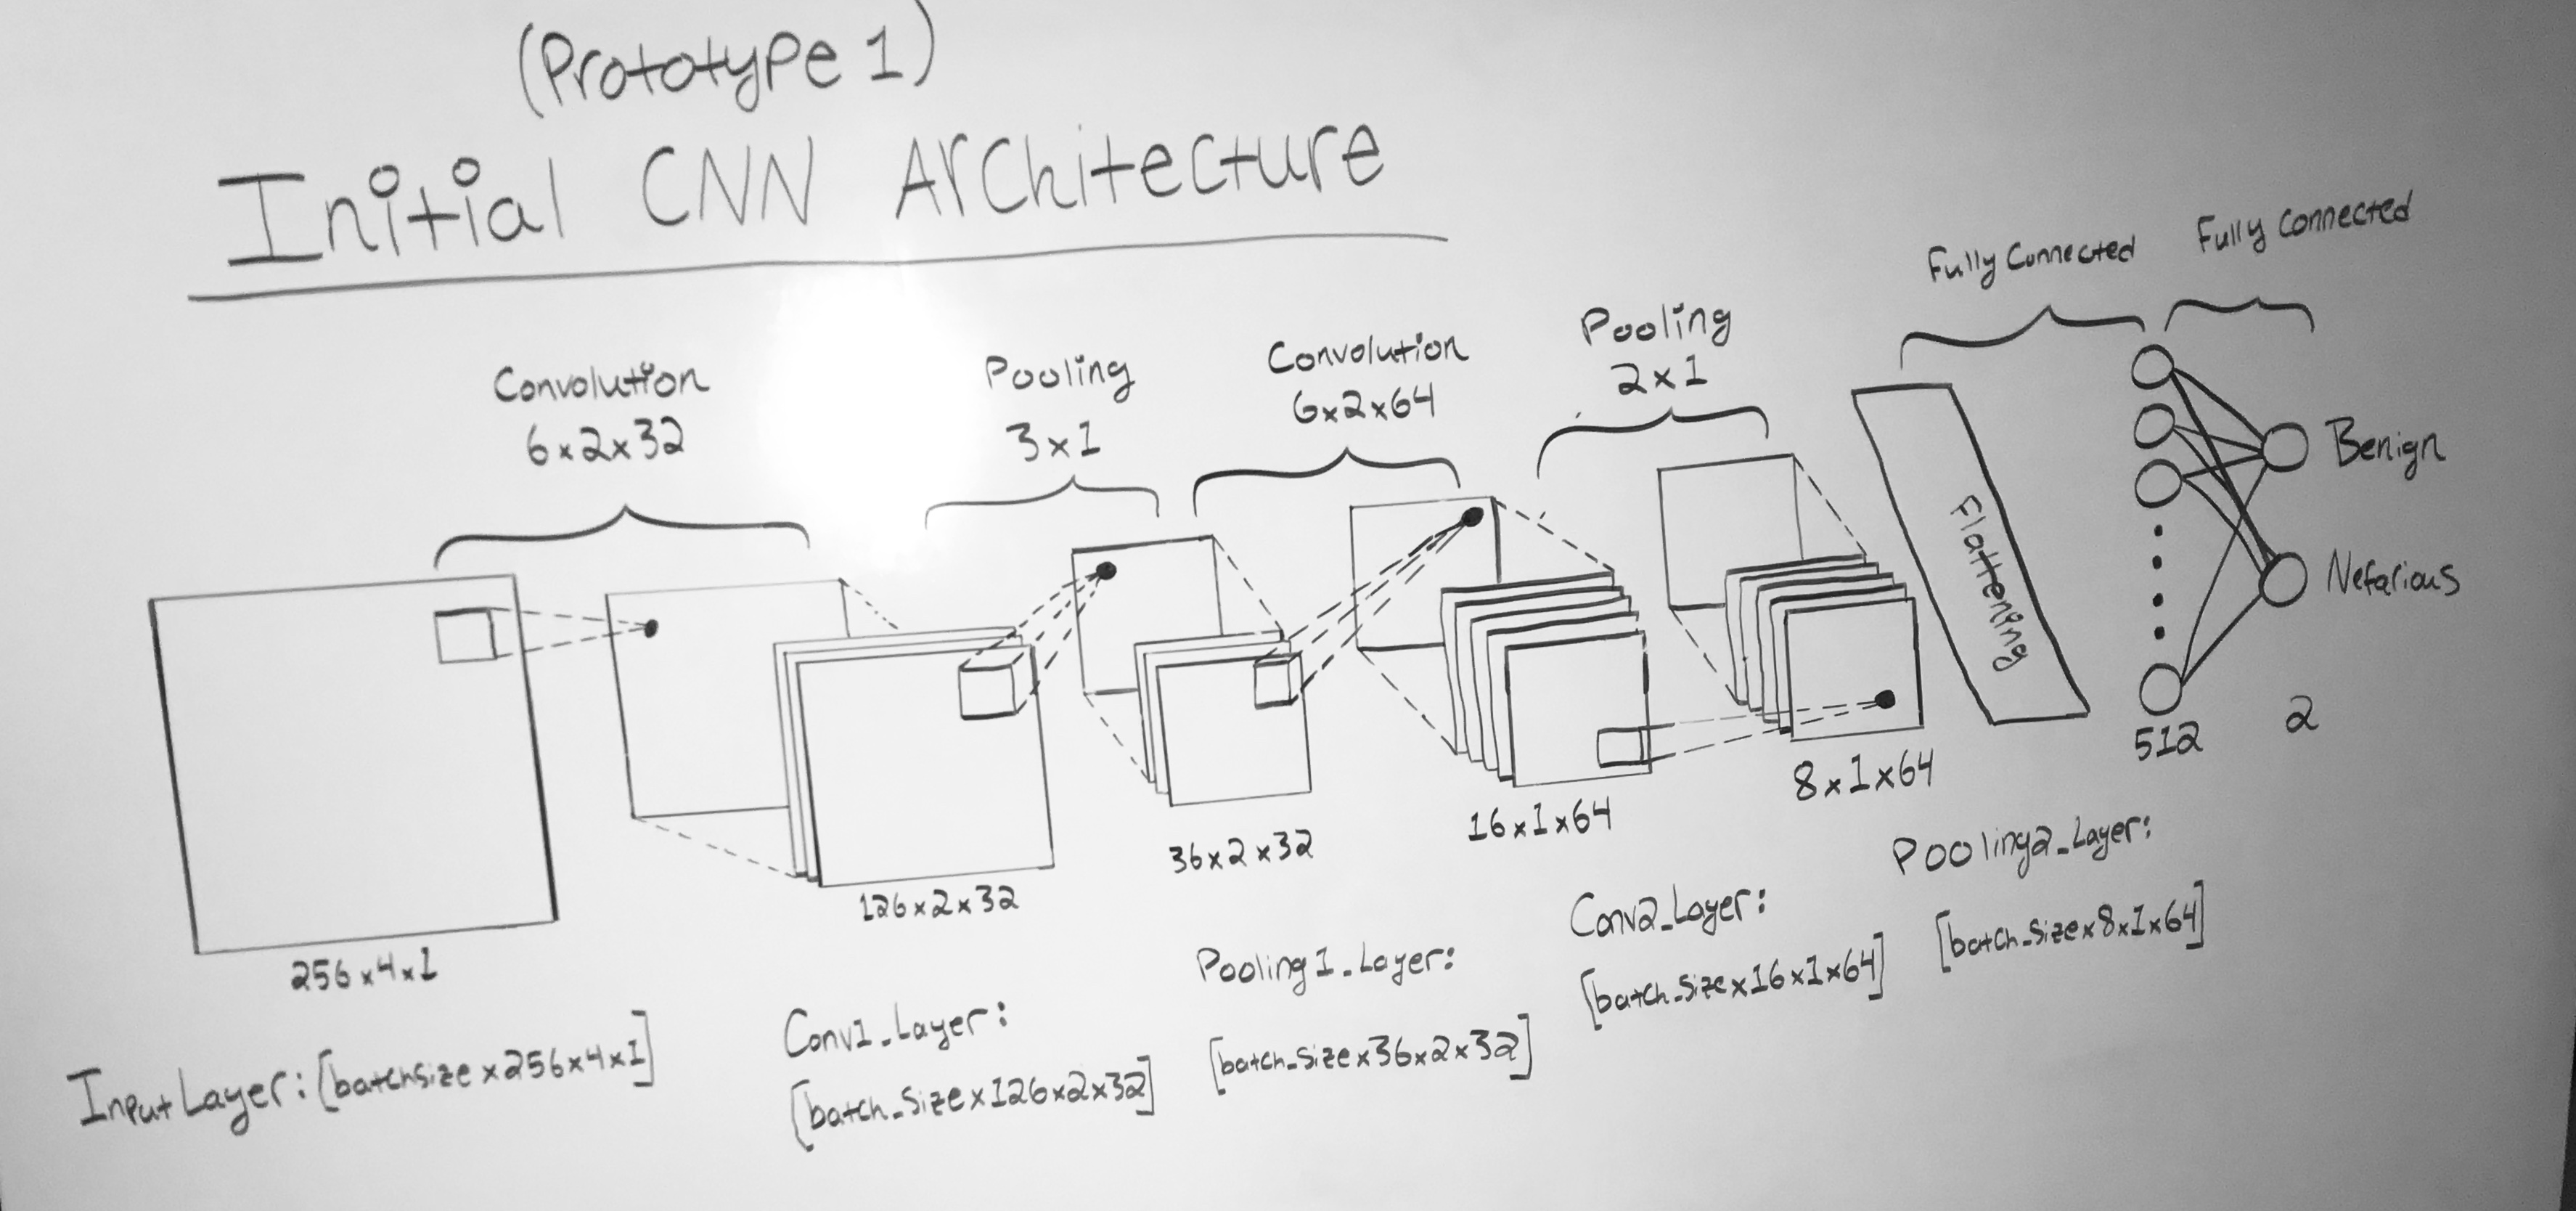 (Prototype 1)
Initial CNN Architecture
Convolution
6x2x32
Pooling
3x1
Convolution
6x2x64
Pooling
2x1
Fully Connected
Fully Connected
Flattening
Benign
Nefarious
512
2
256x4x1
126x2x32
36x2x32
16x1x64
8x1x64
Input Layer: [batchsize x256x4x1]
Conv1_Layer:
[batch_size x126x2x32]
Pooling1_Layer:
[batch_size x36x2x32]
Conv2_Layer:
[batch_size x16x1x64]
Pooling2_Layer:
[batch_size x8x1x64]